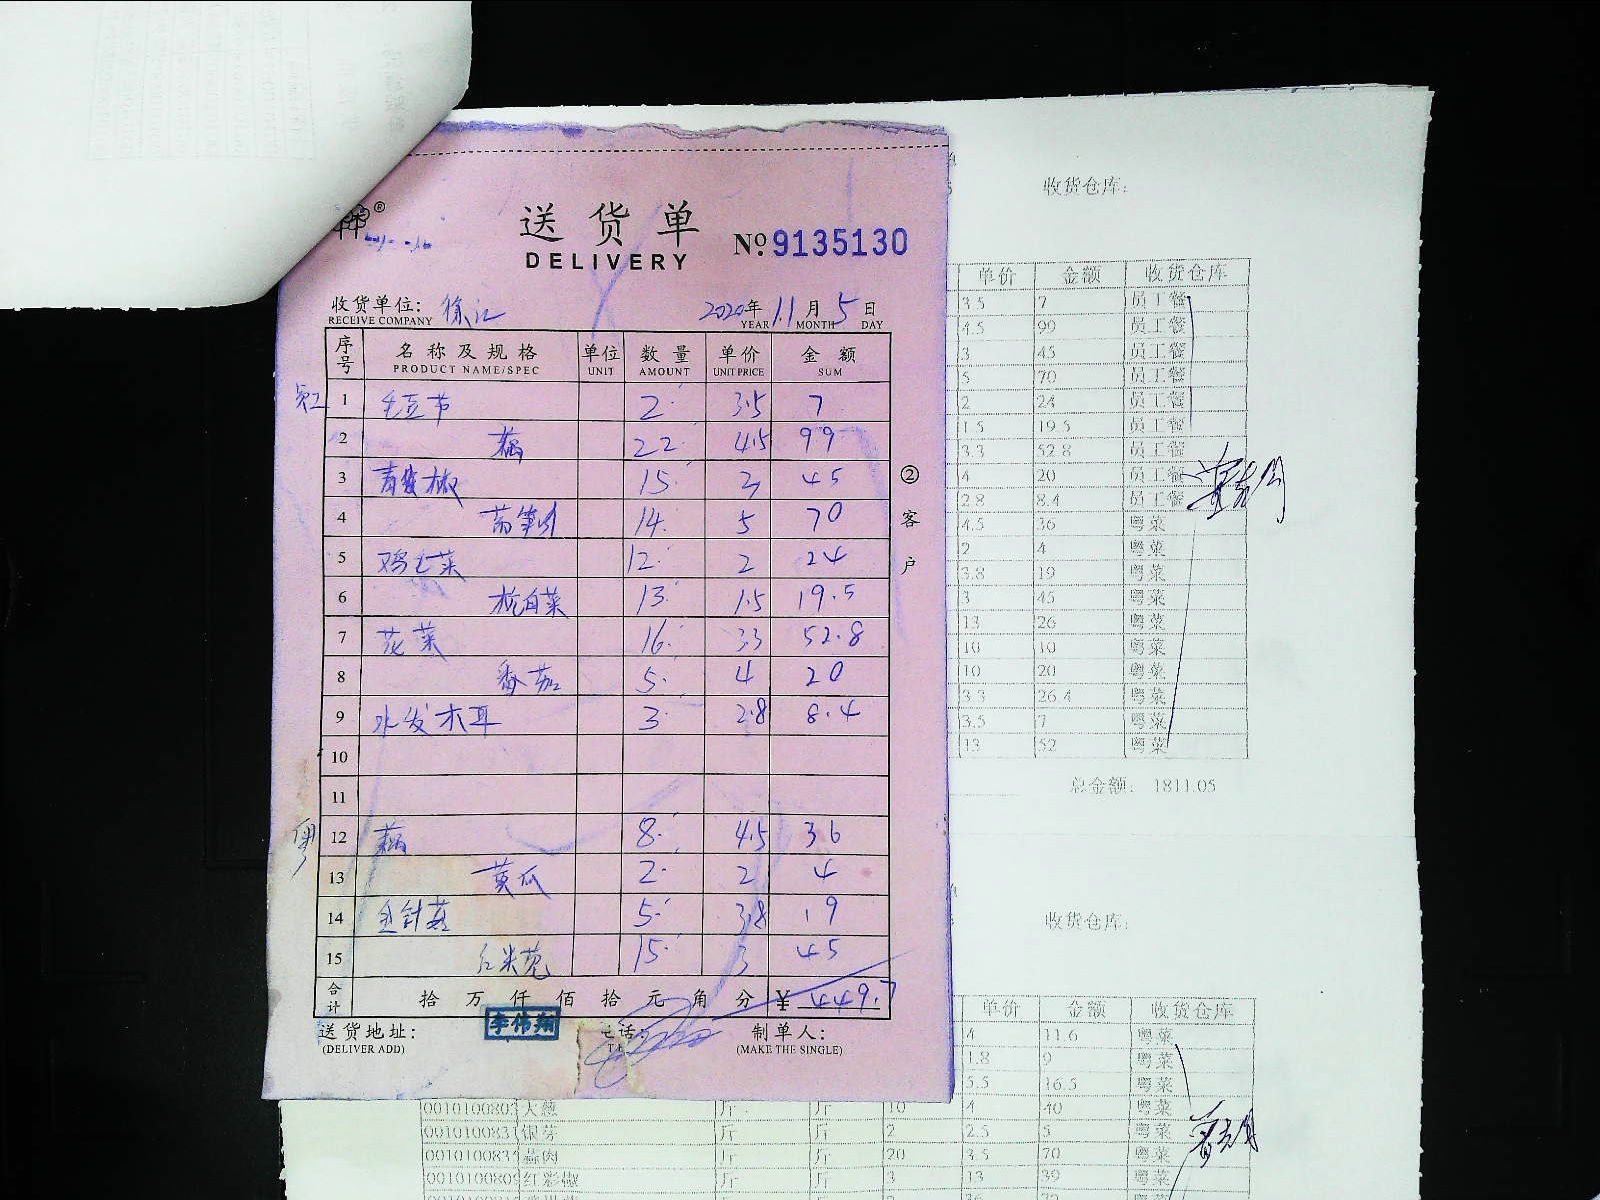 送货单
DELIVERY
№ 9135130
收货单位: 徐汇 2020年 11月 5日
RECEIVE COMPANY YEAR MONTH DAY
序号 名称及规格 单位 数量 单价 金额
PRODUCT NAME/SPEC UNIT AMOUNT UNIT PRICE SUM
员工 1 毛豆节 2 3.5 7
2 藕 22 4.5 99
3 青尖椒 15 3 45
4 莴笋 14 5 70
5 鸡毛菜 12 2 24
6 杭白菜 13 1.5 19.5
7 花菜 16 3.3 52.8
8 番茄 5 4 20
9 水发木耳 3 2.8 8.4
10
11
粤 12 藕 8 4.5 36
13 黄瓜 2 2 4
14 金针菇 5 3.8 19
15 红米苋 15 3 45
合计 拾万仟佰拾元角分 ¥ 449.7
送货地址: 李伟翔 电话: 制单人:
(DELIVER ADD) (MAKE THE SINGLE)
②客户
收货仓库:
单价 金额 收货仓库
3.5 7 员工餐
4.5 99 员工餐
3 45 员工餐
5 70 员工餐
2 24 员工餐
1.5 19.5 员工餐
3.3 52.8 员工餐
4 20 员工餐
2.8 8.4 员工餐
4.5 36 粤菜
2 4 粤菜
3.8 19 粤菜
3 45 粤菜
13 26 粤菜
10 10 粤菜
10 20 粤菜
3.3 26.4 粤菜
3.5 7 粤菜
13 52 粤菜
总金额: 1811.05
收货仓库:
单价 金额 收货仓库
4 11.6 粤菜
1.8 9 粤菜
5.5 16.5 粤菜
大葱 斤 斤 10 4 40 粤菜
银芽 斤 斤 2 2.5 5 粤菜
斤 斤 20 3.5 70 粤菜
红彩椒 斤 斤 3 13 39 粤菜